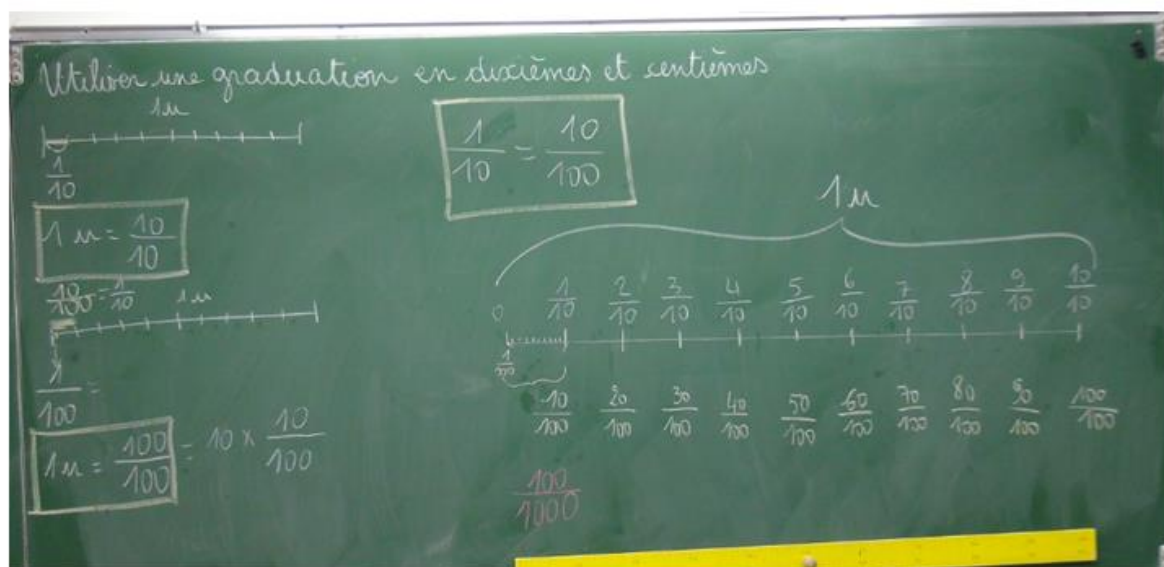 Utiliser une graduation en dixièmes et centièmes
1u
1/10
1u = 10/10
10/100 = 1/10
1u
1/100 =
1u = 100/100 = 10 × 10/100
1/10 = 10/100
1u
0 1/10 2/10 3/10 4/10 5/10 6/10 7/10 8/10 9/10 10/10
1/100
10/100 20/100 30/100 40/100 50/100 60/100 70/100 80/100 90/100 100/100
100/1000